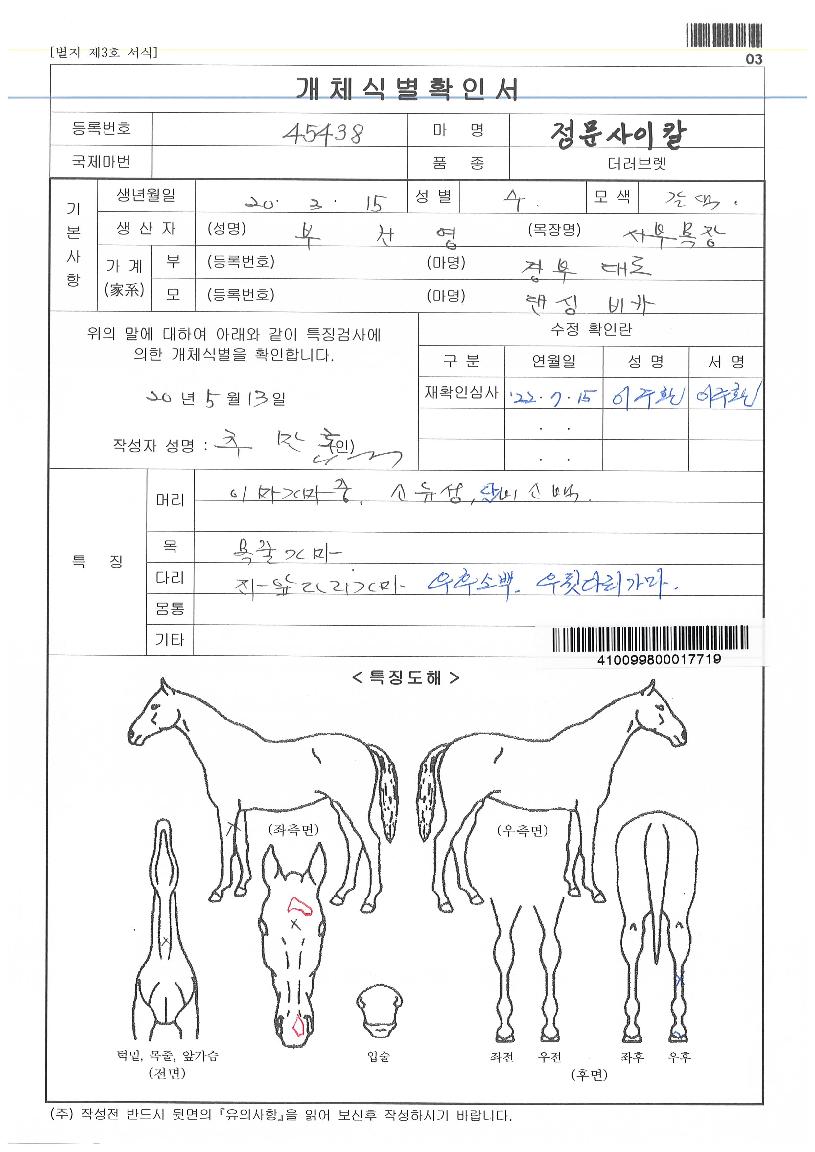 [별지 제3호 서식]
03
개체식별확인서
등록번호 45438 마 명 정문사이칼
국제마번 품 종 더러브렛
기본사항
생년월일 20. 3. 15 성 별 수. 모 색 갈색.
생 산 자 (성명) 부 찬 영 (목장명) 서부목장
가 계 (家系) 부 (등록번호) (마명) 경부대로
모 (등록번호) (마명) 댄싱 비카
위의 말에 대하여 아래와 같이 특징검사에
의한 개체식별을 확인합니다.
20 년 5 월 13 일
작성자 성명 : 추 (인)
수정 확인란
구 분 연월일 성 명 서 명
재확인심사 '22. 7. 15 이주환 이주환
. .
. .
특 징
머리 이마가마 중, 소유성, 단비소백.
목 목줄가마
다리 좌앞다리가마. 우후소백. 우뒷다리가마.
몸통
기타
410099800017719
< 특징도해 >
(좌측면) (우측면)
턱밑, 목줄, 앞가슴 입술 좌전 우전 좌후 우후
(전면) (후면)
(주) 작성전 반드시 뒷면의 『유의사항』을 읽어 보신후 작성하시기 바랍니다.